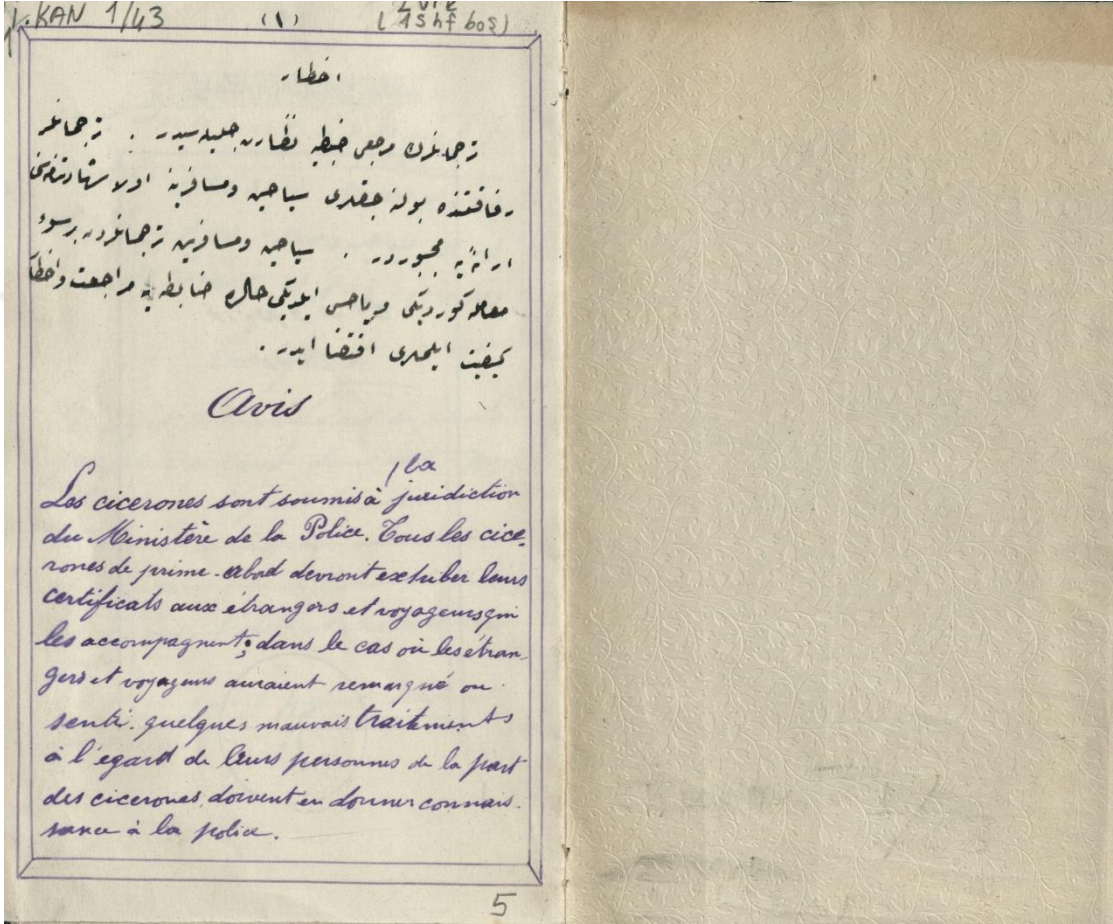 KAN 1/43 (١) (1 shf boş)
اخطار
ترجمانلرك مرجعی ضبطیه نظارت جلیله سیدر . ترجمانلر
رفاقتنده بولنه جقلری سیاحین ومسافرینه اولا شهادتنامه لرینی
ارائه یه مجبوردر . سیاحین ومسافرین ترجمانلردن بر سوء
معامله كوردیكی ویا حس ایلدیكی حالده ضابطه یه مراجعت واخطار
كیفیت ایلملری اقتضا ایدر .
Avis
la
Les cicerones sont soumis à juridiction
du Ministère de la Police. Tous les cice-
rones de prime-abord devront exhiber leurs
certificats aux étrangers et voyageurs qui
les accompagnent; dans le cas où les étran-
gers et voyageurs auraient remarqué ou
senti quelques mauvais traitements
à l'égard de leurs personnes de la part
des cicerones, doivent en donner connais-
sance à la police.
5